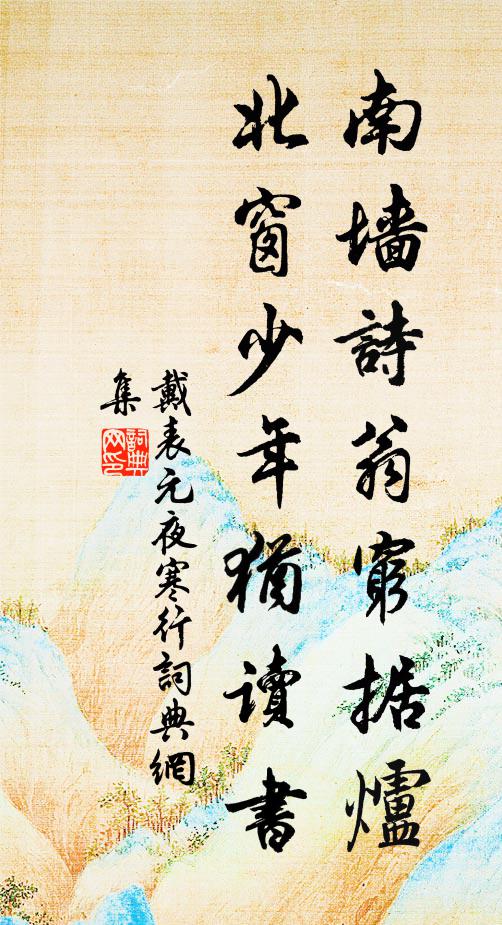 南墻詩翁窮据爐
北窗少年猶讀書
戴表元夜寒行詞典網
集
詞典
网印